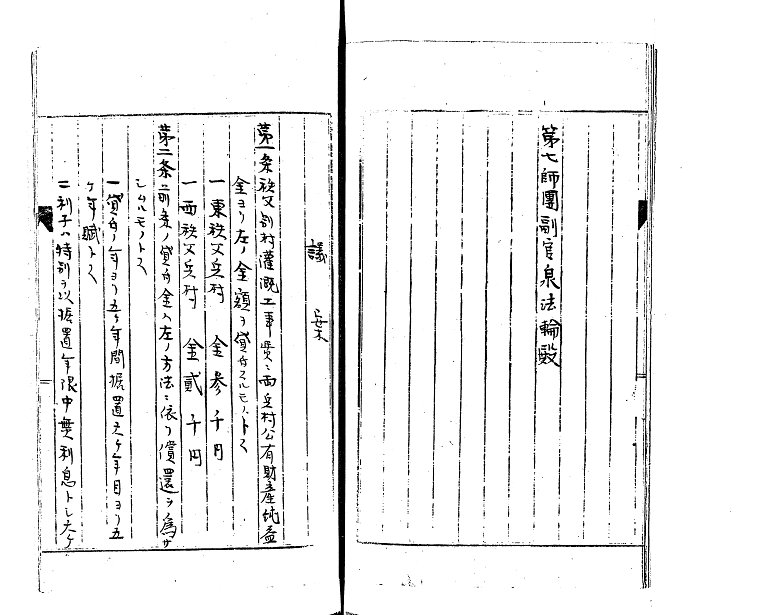 第七師團副官泉法輪殿
議案
第一条秩父別村灌漑工事費ニ両兵村公有財産純益
金ヨリ左ノ金額ヲ貸与スルモノトス
一東秩父兵村　金参千円
一西秩父兵村　金貳千円
第二条前条ノ貸与金ハ左ノ方法ニ依リ償還ヲ為サ
シムルモノトス
一貸与ノ年ヨリ五ケ年間据置六ケ年目ヨリ五
ケ年賦トス
二利子ハ特別ヲ以据置年限中無利息トシ六ケ